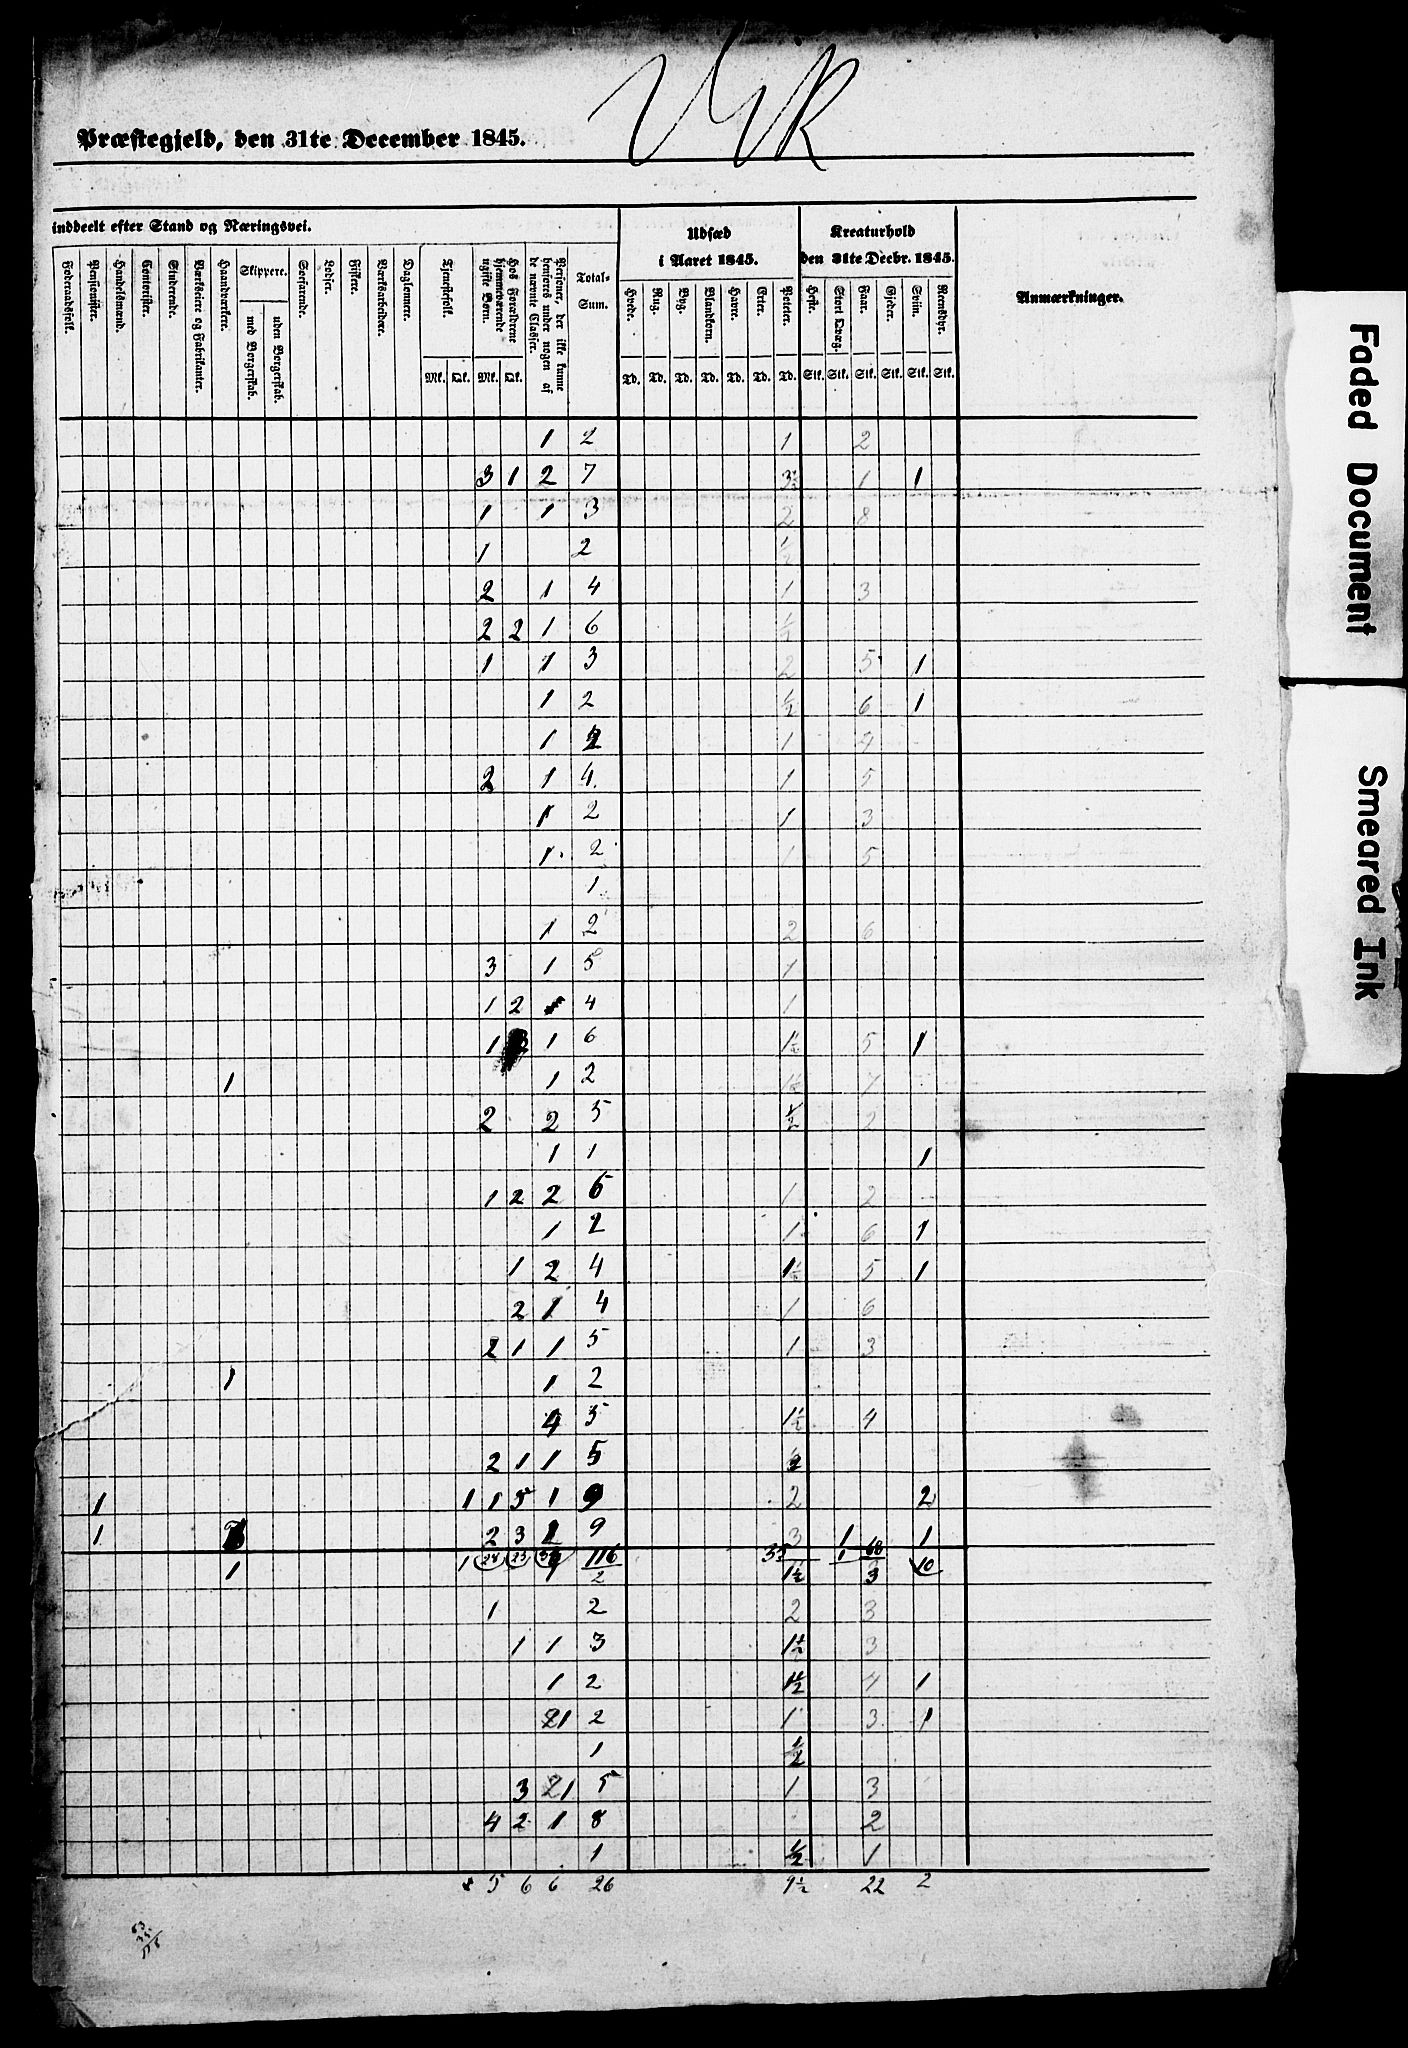 Vik
Præstegjeld, den 31te December 1845.
inddeelt efter Stand og Næringsvei.
Udsæd
i Aaret 1845.
Kreaturhold
den 31te Decbr. 1845.
Anmærkninger.
Føderaadsfolk. Pensionister. Handelsmænd. Contorister. Studerende. Værkseiere og Fabrikanter. Haandværkere. Skippere. med Borgerskab. uden Borgerskab. Søefarende. Lodser. Fiskere. Værksarbeidere. Daglønnere. Tjenestefolk. Mk. Qk. Hos Forældrene hjemmeværende ugifte Børn. Mk. Qk. Personer, der ikke kunne henføres under nogen af de nævnte Classer. Total-Sum. Hvede. Td. Rug. Td. Byg. Td. Blandkorn. Td. Havre. Td. Erter. Td. Poteter. Td. Heste. Stk. Stort Qvæg. Stk. Faar. Stk. Gjeder. Stk. Sviin. Stk. Rensdyr. Stk.
1 2 1 2
3 1 2 7 1 1
1 1 3 2 8
1 2 ½
2 1 4 1 3
2 2 1 6 ½
1 1 3 2 5 1
1 2 ½ 6 1
1 2 1
2 1 4 1 5
1 2 1 3
1 2 1 5
1
1 2 2 6
3 1 5 1
1 2 4 1
1 1 6 1½ 5 1
1 1 2 1½
2 2 5 ½ 2
1 1 1
1 2 2 6 1 2
1 2 1 6 1
1 2 4 1½ 5 1
2 1 4 1 6
2 1 1 5 1 3
1 1 2
4 5 1½ 4
2 1 1 5 ½
1 1 1 5 1 9 2 2
1 2 3 9 3 1 1
1 24 23 116 35 1 68 10
1 1 2 1½ 3
1 2 2 3
1 1 3 1½ 3
1 2 1½ 4 1
21 2 1 3 1
1 ½
3 21 5 1 3
4 2 1 8 2
1 ½ 1
5 6 6 26 1½ 22 2
Faded Document
Smeared Ink